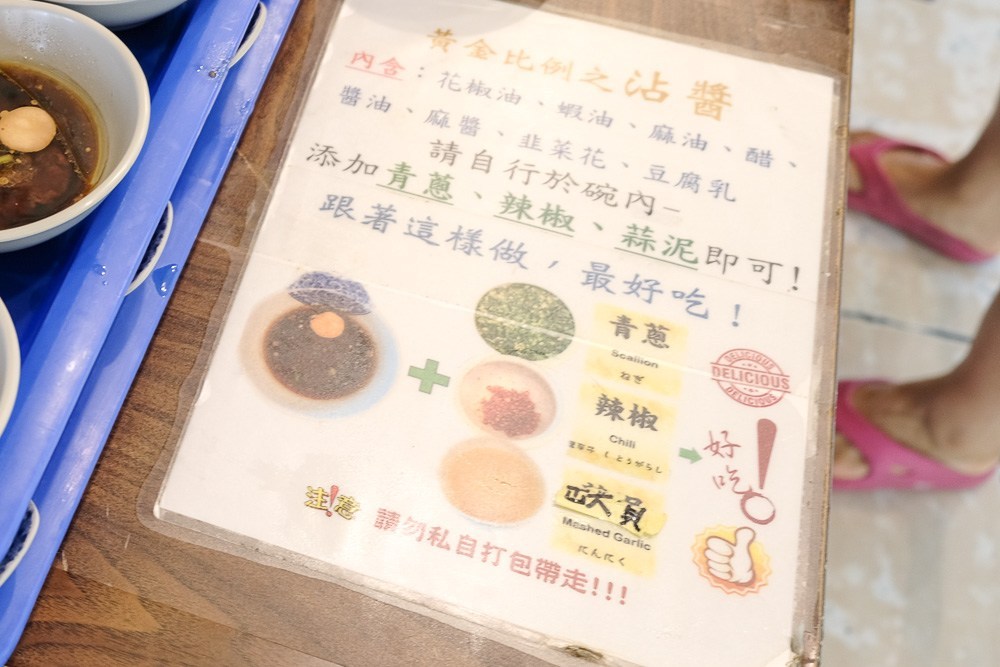 黃金比例之沾醬
內含：花椒油、蝦油、麻油、醋、
醬油、麻醬、韭菜花、豆腐乳
請自行於碗內-
添加青蔥、辣椒、蒜泥即可!
跟著這樣做，最好吃！
青蔥
Scallion
ねぎ
辣椒
Chili
唐辛子(とうがらし
Mashed Garlic
にんにく
DELICIOUS
DELICIOUS
DELICIOUS
好吃!
注!意
請勿私自打包帶走!!!